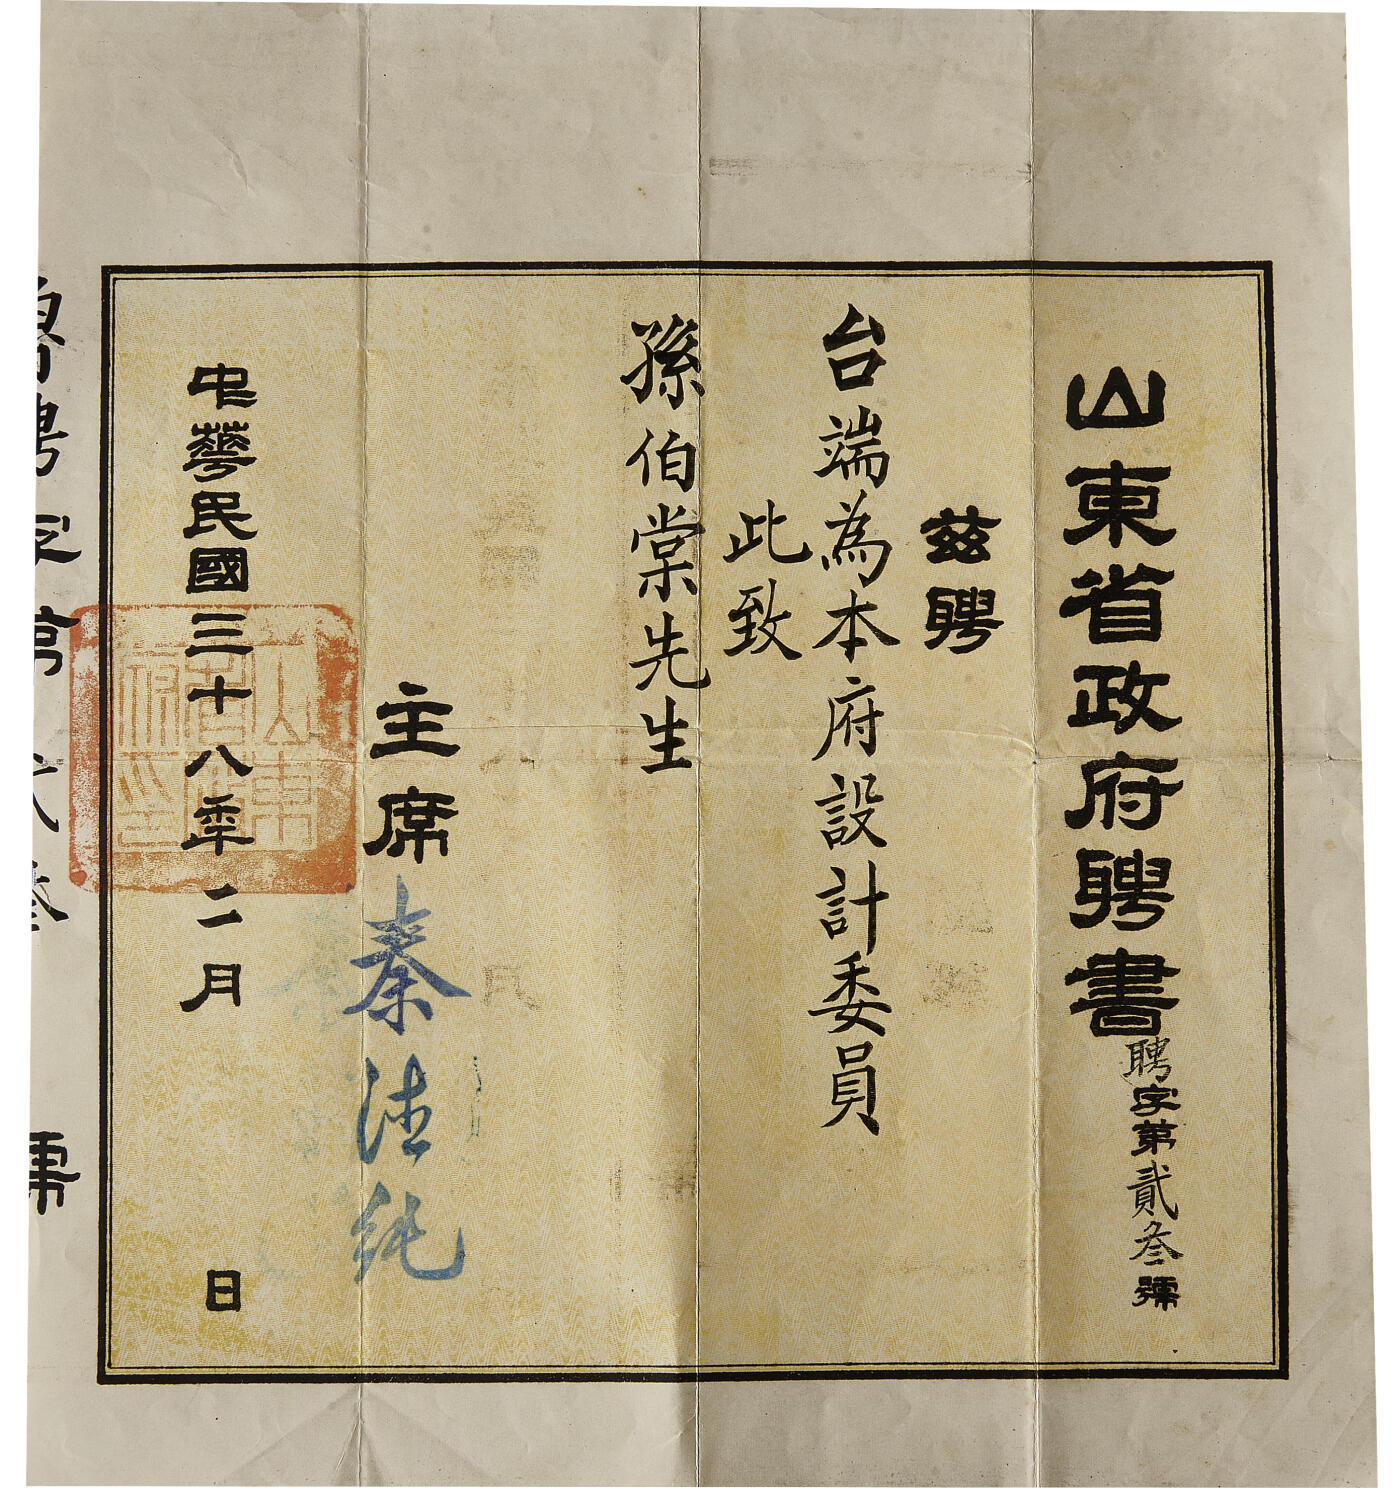 山東省政府聘書
聘字第貳叁號
茲聘
台端為本府設計委員
此致
孫伯棠先生
主席秦德純
中華民國三十八年二月 日
山東省政府印
魯聘字第貳叁號